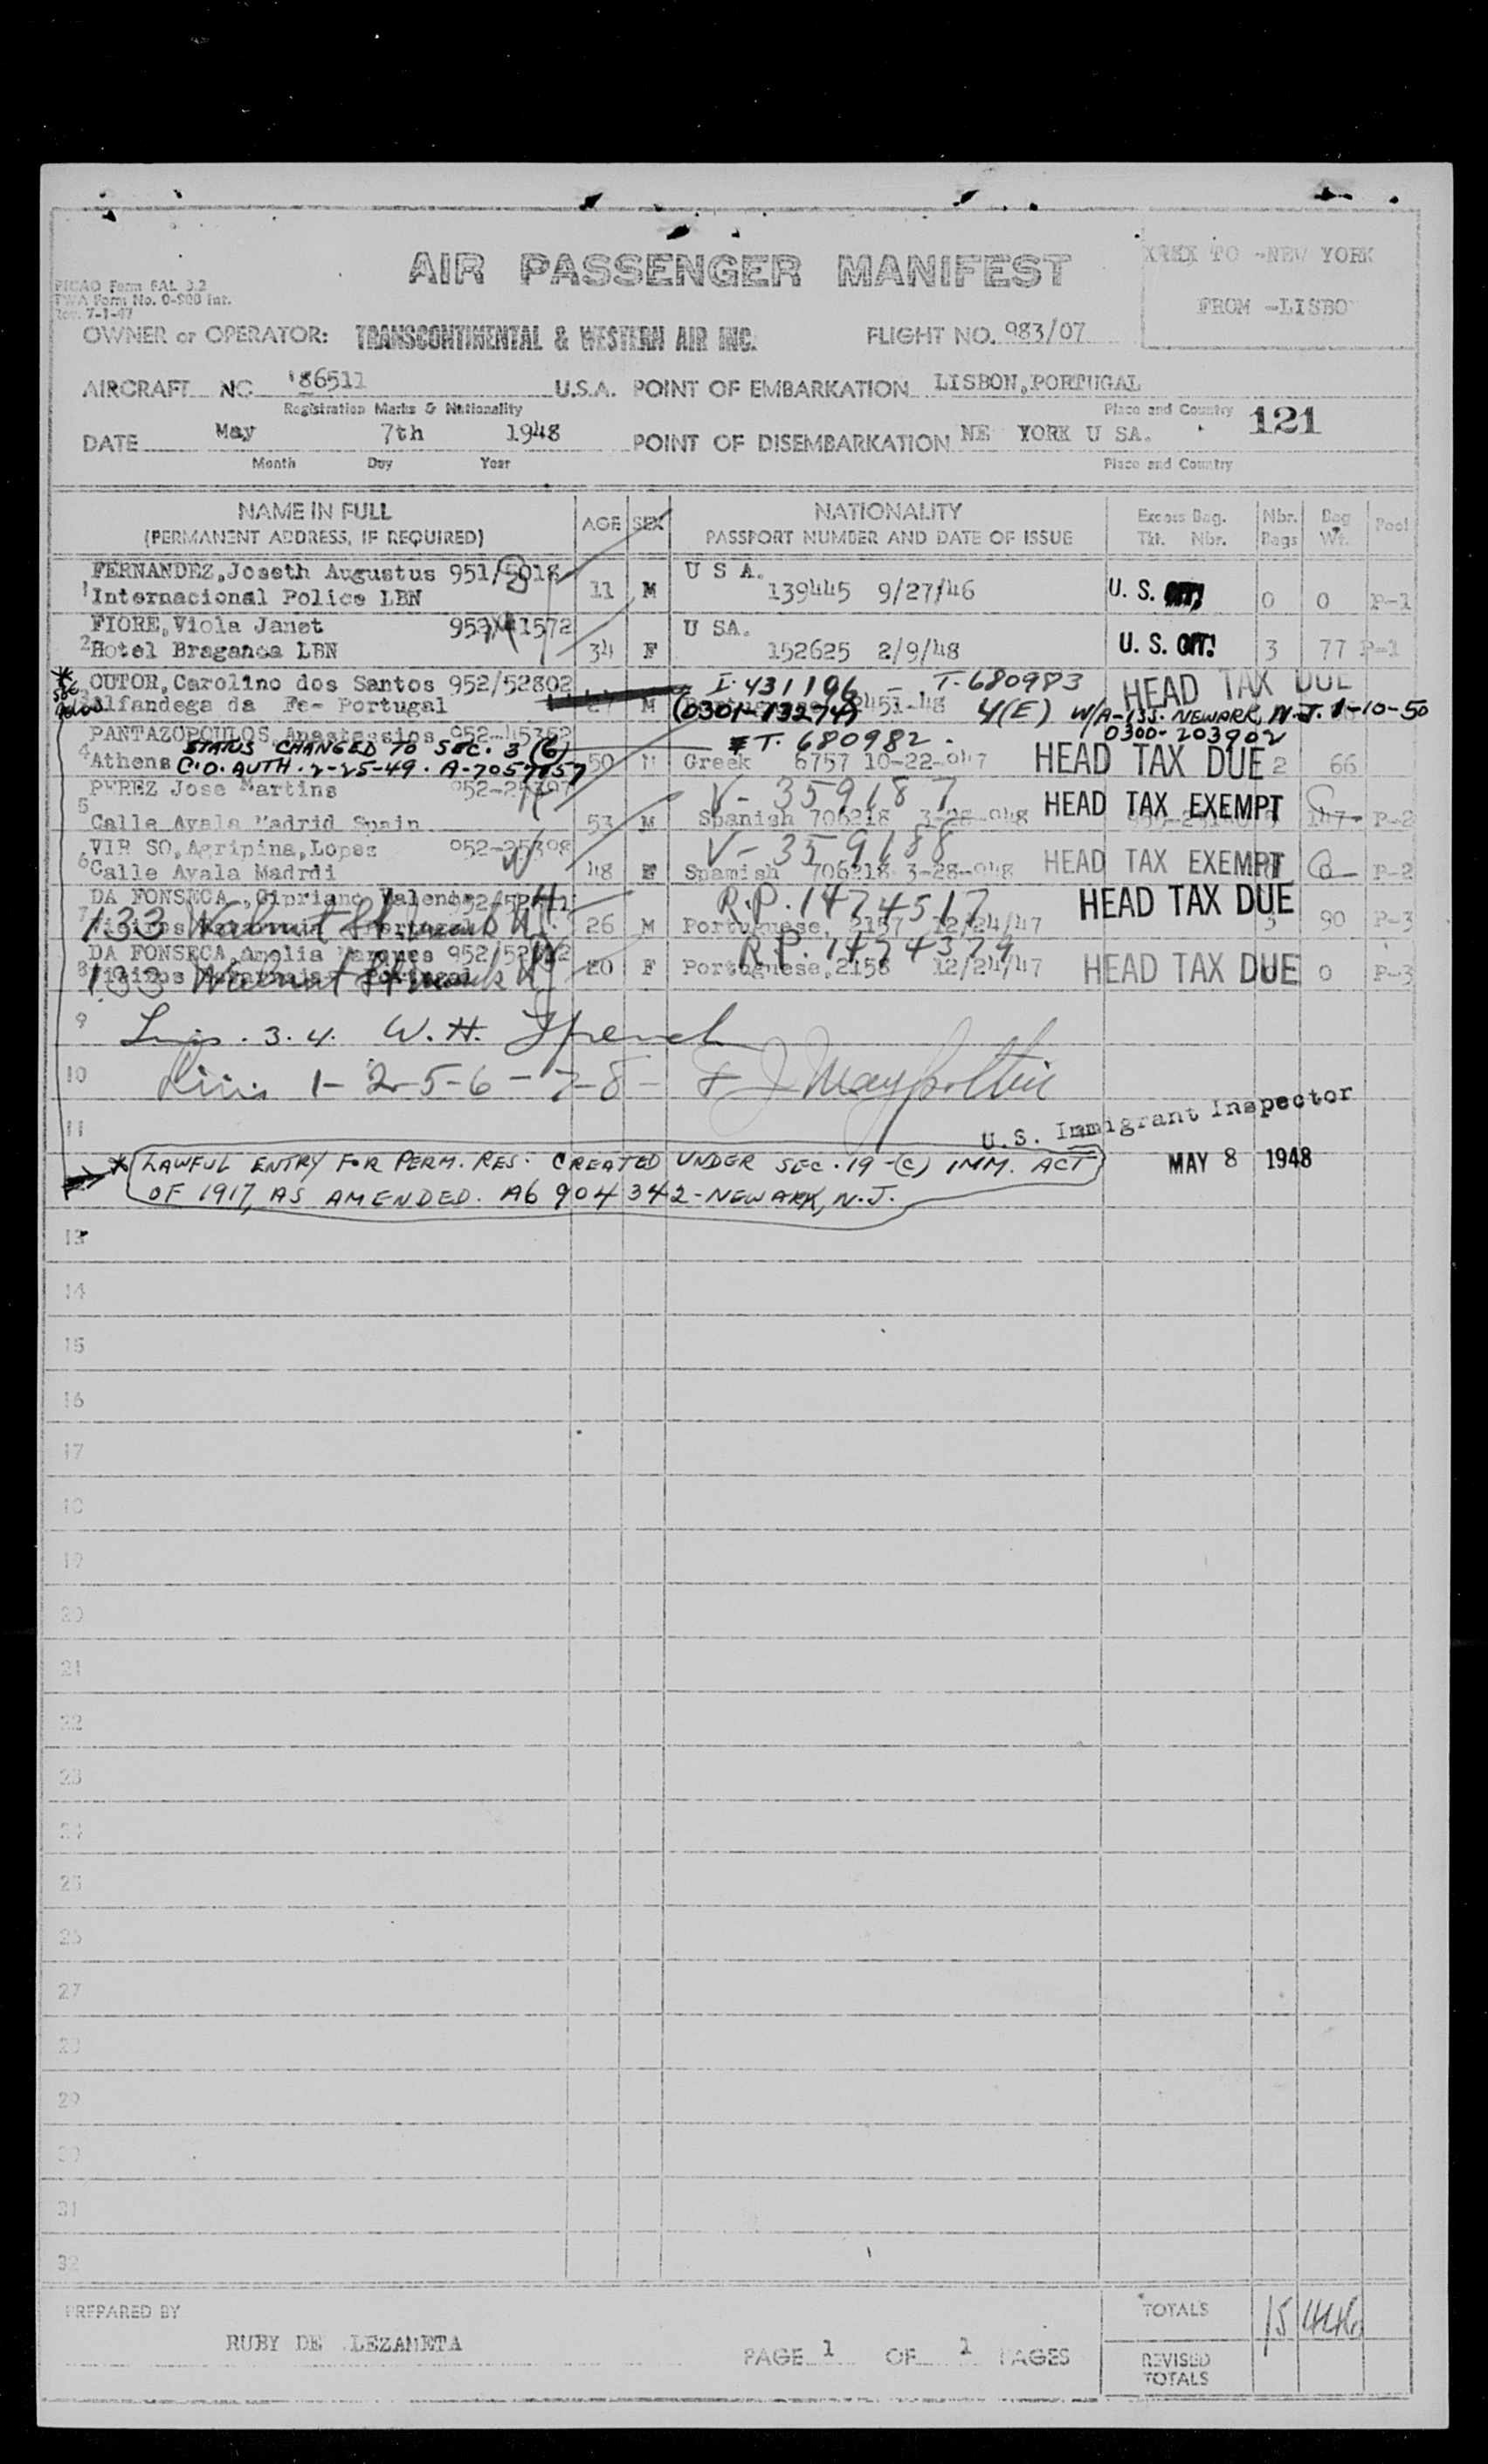 AIR PASSENGER MANIFEST
TO -NEW YORK
FROM -LISBO
PICAO Form FAL 3.2
TWA Form No. 0-900 Int.
Rev. 7-1-47
OWNER or OPERATOR: TRANSCONTINENTAL & WESTERN AIR INC. FLIGHT NO. 983/07
AIRCRAFT NC 86511 U.S.A. POINT OF EMBARKATION LISBON,PORTUGAL
Registration Marks & Nationality Place and Country 121
DATE May 7th 1948 POINT OF DISEMBARKATION NE YORK U SA.
Month Day Year Place and Country
NAME IN FULL AGE SEX NATIONALITY Excess Bag. Nbr. Bag Pool
(PERMANENT ADDRESS, IF REQUIRED) PASSPORT NUMBER AND DATE OF ISSUE Tkt. Nbr. Bags Wt.
FERNANDEZ,Joseth Augustus 951/ U S A.
1 Internacional Police LBN 11 M 139445 9/27/46 U. S. 0 0 P-1
FIORE,Viola Janet U SA.
2 Hotel Braganca LBN 34 F 152625 2/9/48 U. S. 3 77 P-1
* OUTOR,Carolino dos Santos 952/52802 I-431196 - T-680983 HEAD TAX DUE
lfandega da Fe- Portugal M (0301-13274) 4(E) W/A-133. NEWARK, N.J. 1-10-50
PANTAZOPOULOS, Anastassios 952-45362 T. 680982. 0300-203902
STATUS CHANGED TO SEC. 3 (6)
4 Athens 50 M Greek 6757 10-22-947 HEAD TAX DUE 2 66
C.O. AUTH. 2-25-49. A-7057857
PEREZ Jose Martins V-359187
5 Calle Ayala Madrid Spain 53 M Spanish 706218 3-28-948 HEAD TAX EXEMPT 147 P-2
VIR SO,Agripina,Lopez 952-25398 V-359188
6 Calle Ayala Madrdi 48 F Spanish 706218 3-28-948 HEAD TAX EXEMPT P-2
DA FONSECA,,Cipriano Valente R.P. 1474517 HEAD TAX DUE
7 133 Walnut St Newark NJ 26 M Portuguese, 2157 12/24/47 3 90 P-3
DA FONSECA,Amelia Marques R.P. 1474379
8 133 Walnut St Newark NJ 20 F Portuguese,2158 12/24/47 HEAD TAX DUE 0 P-3
9 3. 4. W. H. French
10 1-2-5-6-7-8-
11 U.S. Immigrant Inspector
* LAWFUL ENTRY FOR PERM. RES. CREATED UNDER SEC. 19-(C) IMM. ACT MAY 8 1948
OF 1917, AS AMENDED. A6 904 342-NEWARK, N.J.
13
14
15
16
17
18
19
20
21
22
23
24
25
26
27
28
29
30
31
32
PREPARED BY TOTALS 15 446
RUBY DE LEZAMETA PAGE 1 OF 1 PAGES
REVISED
TOTALS